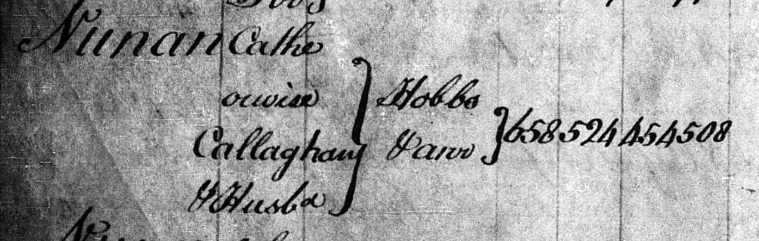 Nunan Cathe
orwise } Hobbs
Callaghan } & anr } 658 524 454 508
& Husbd